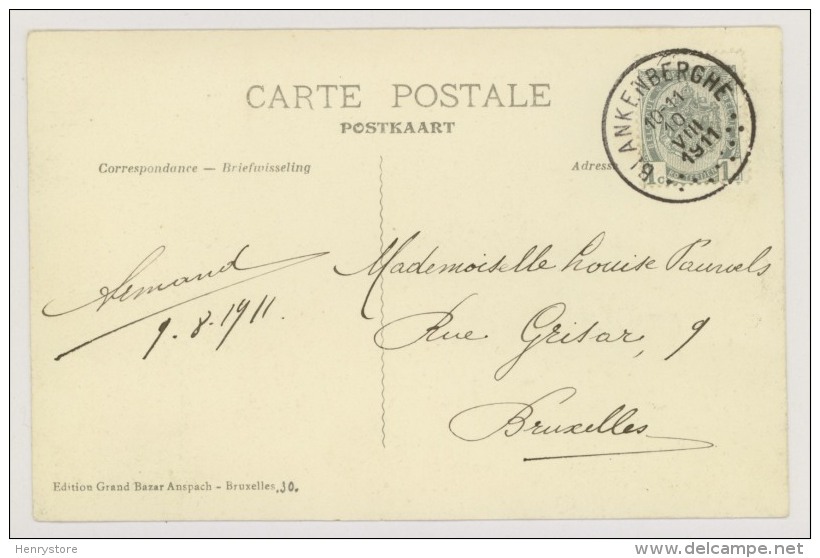 CARTE POSTALE
POSTKAART
Correspondance — Briefwisseling
Adresse
BLANKENBERGHE
10-11
10
VIII
1911
1
1
Armand
9.8.1911.
Mademoiselle Louise Pauwels
Rue Grisar, 9
Bruxelles
Edition Grand Bazar Anspach - Bruxelles 30.
Henrystore
www.delcampe.net